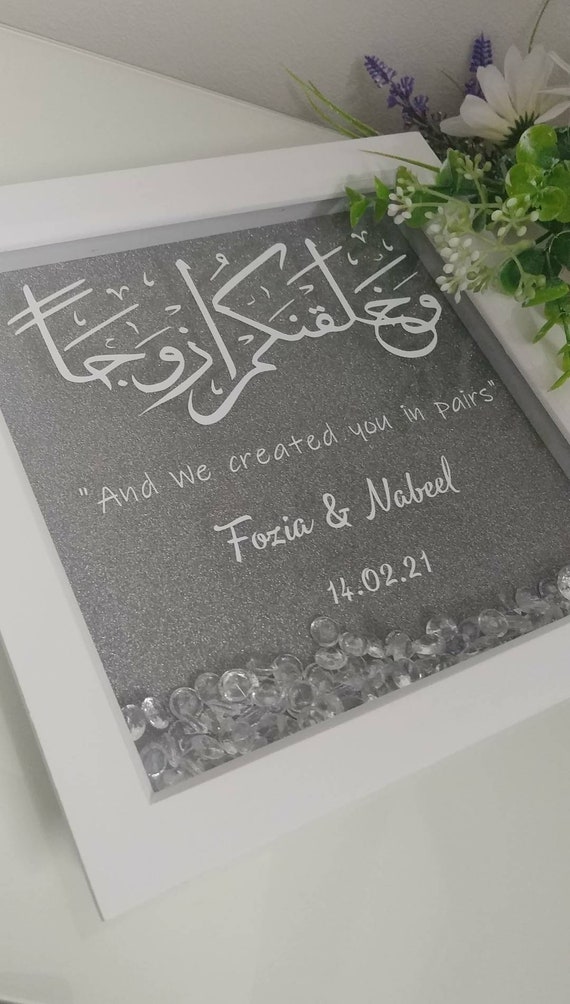 وخلقنكم أزوجا
"And We created you in pairs"
Fozia & Nabeel
14.02.21